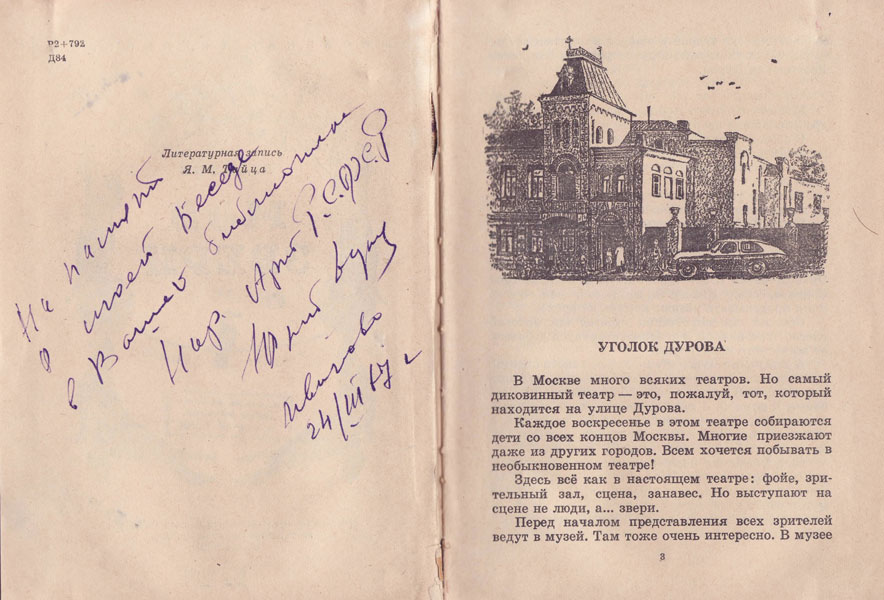 Р2+792
Д84
Литературная запись
Я. М. Тайца
На память
о моей беседе
в Вашей библиотеке
Нар. Арт Р.С.Ф.С.Р
Юрий Дуров
Иваново
24/III 67 г
УГОЛОК ДУРОВА
В Москве много всяких театров. Но самый
диковинный театр — это, пожалуй, тот, который
находится на улице Дурова.
Каждое воскресенье в этом театре собираются
дети со всех концов Москвы. Многие приезжают
даже из других городов. Всем хочется побывать в
необыкновенном театре!
Здесь всё как в настоящем театре: фойе, зри-
тельный зал, сцена, занавес. Но выступают на
сцене не люди, а... звери.
Перед началом представления всех зрителей
ведут в музей. Там тоже очень интересно. В музее
3